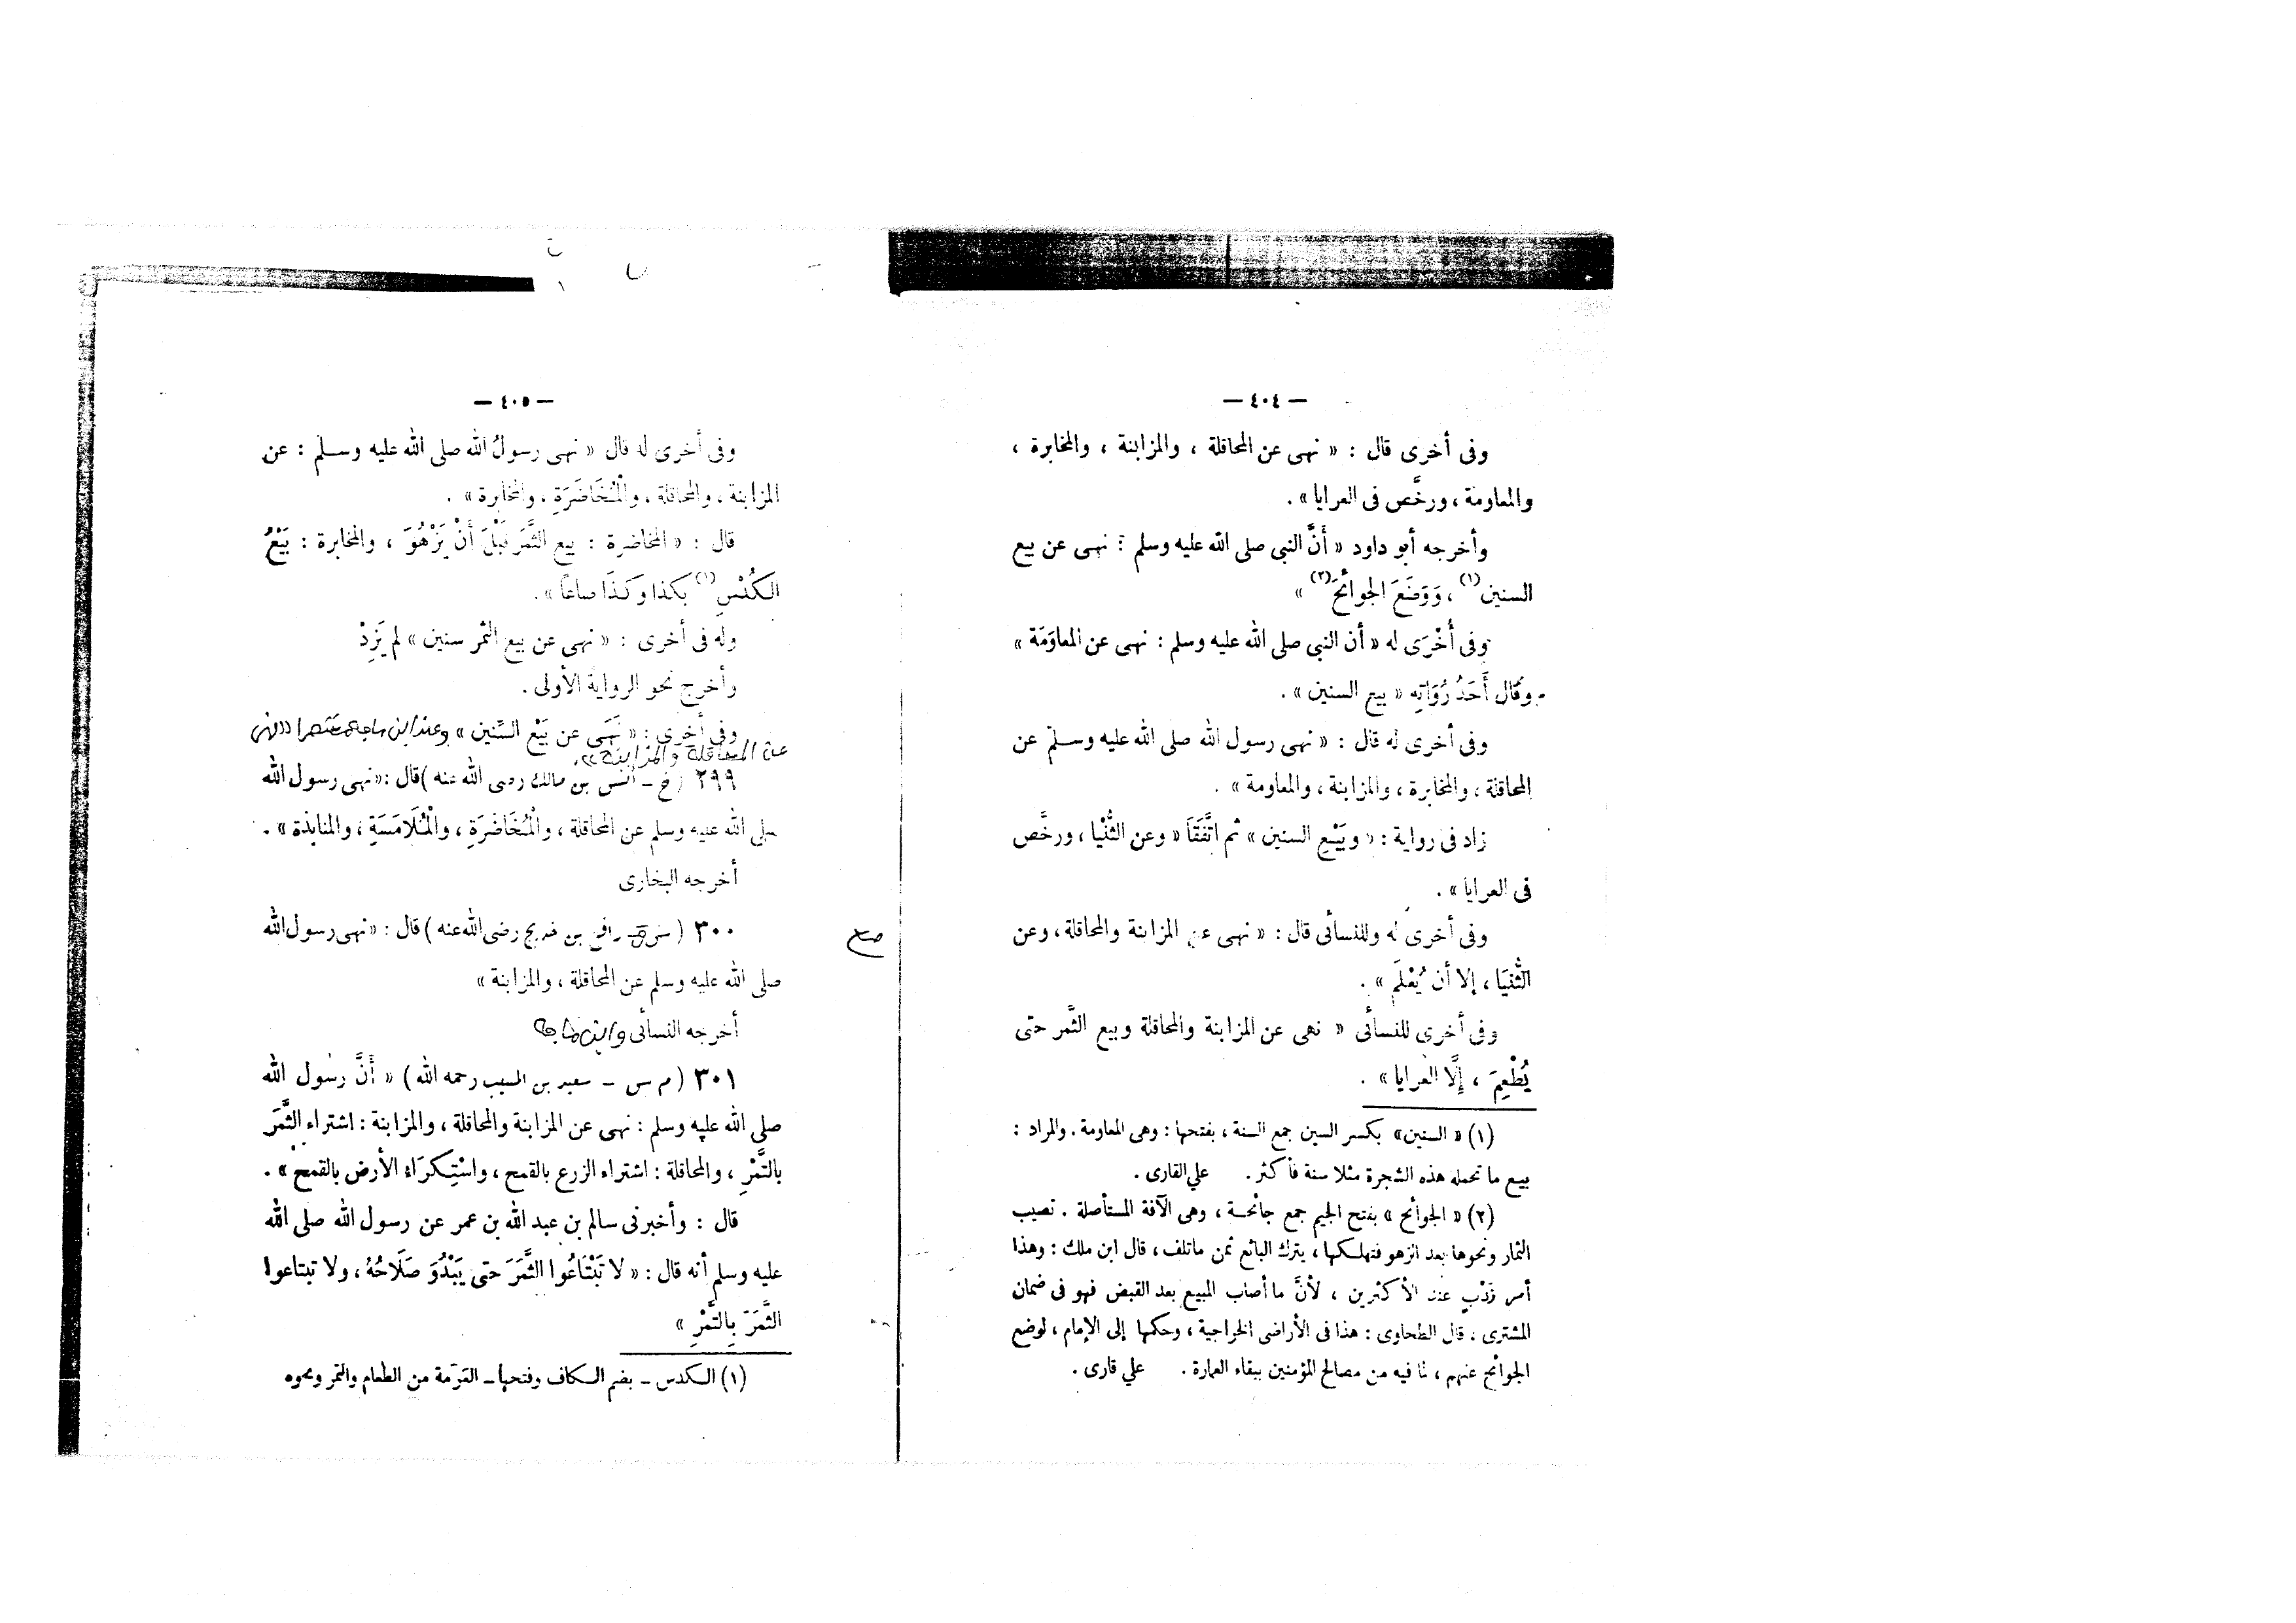 — ٤٠٤ —
وفى أخرى قال : « نهى عن المحاقلة ، والمزابنة ، والمخابرة ،
والمعاومة ، ورخَّص فى العرايا » .
وأخرجه أبو داود « أَنَّ النبى صلى الله عليه وسلم : نهى عن بيع
السنين (١) ، وَوَضَعَ الجوائحَ (٢) »
وفى أُخْرَى له « أن النبى صلى الله عليه وسلم : نهى عن المعاوَمَة »
وقال أَحَدُ رُوَاتِهِ « بيع السنين » .
وفى أخرى له قال : « نهى رسول الله صلى الله عليه وسلم عن
المحاقلة ، والمخابرة ، والمزابنة ، والمعاومة » .
زاد فى رواية : « وبَيْعِ السنين » ثم اتَّفَقَا « وعن الثُّنْيا ، ورخَّص
فى العرايا » .
وفى أخرى له وللنسائى قال : « نهى عن المزابنة والمحاقلة ، وعن
الثُّنْيَا ، إلا أن يُعْلَمَ » .
وفى أخرى للنسائى « نهى عن المزابنة والمحاقلة وبيع الثَّمر حتى
يُطْعِمَ ، إِلَّا العرايا » .
(١) « السنين » بكسر السين جمع السنة ، بفتحها : وهى المعاومة . والمراد :
بيع ما تحمله هذه الشجرة مثلا سنة فأكثر . علي القارى .
(٢) « الجوائح » بفتح الجيم جمع جائحة ، وهى الآفة المستأصلة . تصيب
الثمار ونحوها بعد الزهو فتهلكها ، يترك البائع ثمن ماتلف ، قال ابن ملك : وهذا
أمر نَدْبٍ عند الأكثرين ، لأنَّ ما أصاب المبيع بعد القبض فهو فى ضمان
المشترى . قال الطحاوى : هذا فى الأراضى الخراجية ، وحكمها إلى الإمام ، لوضع
الجوائح عنهم ، لما فيه من مصالح المؤمنين ببقاء العمارة . علي قارى .
— ٤٠٥ —
وفى أخرى له قال « نهى رسولُ الله صلى الله عليه وسلم : عن
المزابنة ، والمحاقلة ، والْمُخَاضَرَةِ ، والمخابرة » .
قال : « المخاضرة : بيع الثَّمَر قَبْلَ أَنْ يَزْهُوَ ، والمخابرة : بَيْعُ
الكُدْسِ (١) بكذا وكَذَا صاعًا » .
وله فى أخرى : « نهى عن بيع الثمر سنين » لم يَزِدْ
وأخرج نحو الرواية الأولى .
وفى أخرى : « نَهَى عن بَيْع السِّنين » وعند ابن ماجه مختصرا « نهى
عن المحاقلة والمزابنة » .
٢٩٩ ( خ – أنس بن مالك رضى الله عنه ) قال : « نهى رسول الله
صلى الله عليه وسلم عن المحاقلة ، والْمُخَاضَرَةِ ، والْمُلَامَسَةِ ، والمنابذة » .
أخرجه البخارى
صح
٣٠٠ ( س – رافع بن خديج رضى الله عنه ) قال : « نهى رسول الله
صلى الله عليه وسلم عن المحاقلة ، والمزابنة »
أخرجه النسائى وابن ماجه
٣٠١ ( م س – سعيد بن المسيب رحمه الله ) « أَنَّ رسُول الله
صلى الله عليه وسلم : نهى عن المزابنة والمحاقلة ، والمزابنة : اشتراء الثَّمَرَ
بالتَّمْرِ ، والمحاقلة : اشتراء الزرع بالقمح ، واسْتِكرَاء الأرض بالقمح » .
قال : وأخبرنى سالم بن عبد الله بن عمر عن رسول الله صلى الله
عليه وسلم أنه قال : « لا تَبْتَاعُوا الثَّمَرَ حتى يَبْدُوَ صَلَاحُهُ ، ولا تبتاعوا
الثَّمَرَ بِالتَّمْرِ »
(١) الكدس – بضم الكاف وفتحها – العَرَمة من الطعام والتمر ونحوه